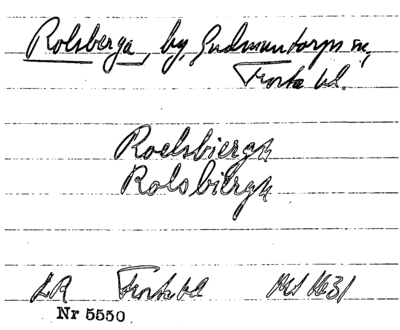 Rolsberga, by, Gudmuntorps sn,
Frosta hd.
Roelsbiergh
Rolsbiergh
LR Frosta hd 1631
Nr 5550